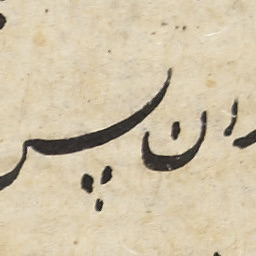 ران پس